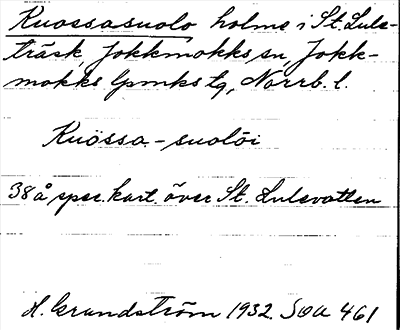 Kuossasuolo holme i St. Lule-
träsk, Jokkmokks sn, Jokk-
mokks lpmks tg, Norrb. l.
Kuössa-suolōi
38 å spec. kart. över St. Lulevatten
H. Grundström 1932. SOA 461